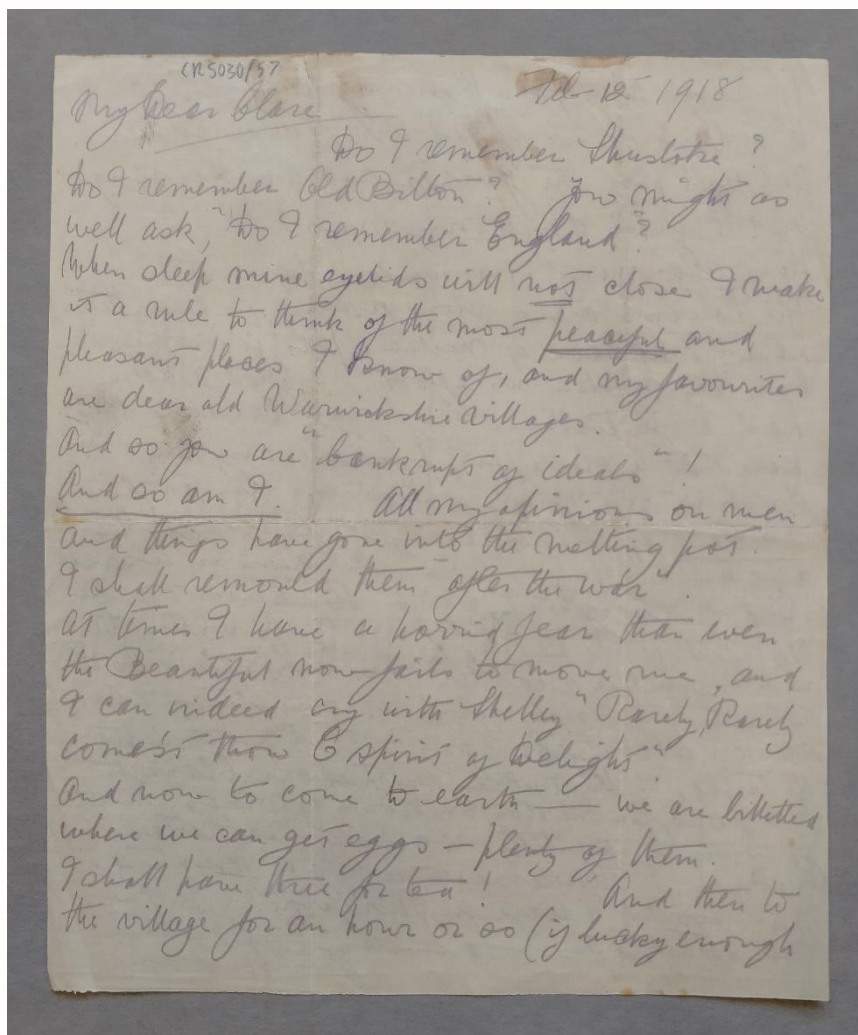 CR5030/57
Feb 12 1918
My Dear Clare
Do I remember ?
Do I remember Old Bilton? You might as
well ask, "Do I remember England"?
When sleep mine eyelids will not close I make
it a rule to think of the most peaceful and
pleasant places I know of, and my favourites
are dear old Warwickshire villages.
And so you are "bankrupt of ideals"!
And so am I. All my opinions on men
and things have gone into the melting pot.
I shall remould them "after the war".
At times I have a horrid fear than even
the Beautiful now fails to move me, and
I can indeed cry with Shelley "Rarely, Rarely
comest thou O spirit of Delight"
And now to come to earth — we are billetted
where we can get eggs — plenty of them.
I shall have three for tea! And then to
the village for an hour or so (if lucky enough